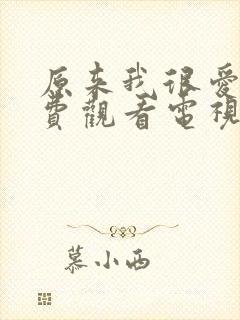 原来我很爱
費觀看電視
慕小西